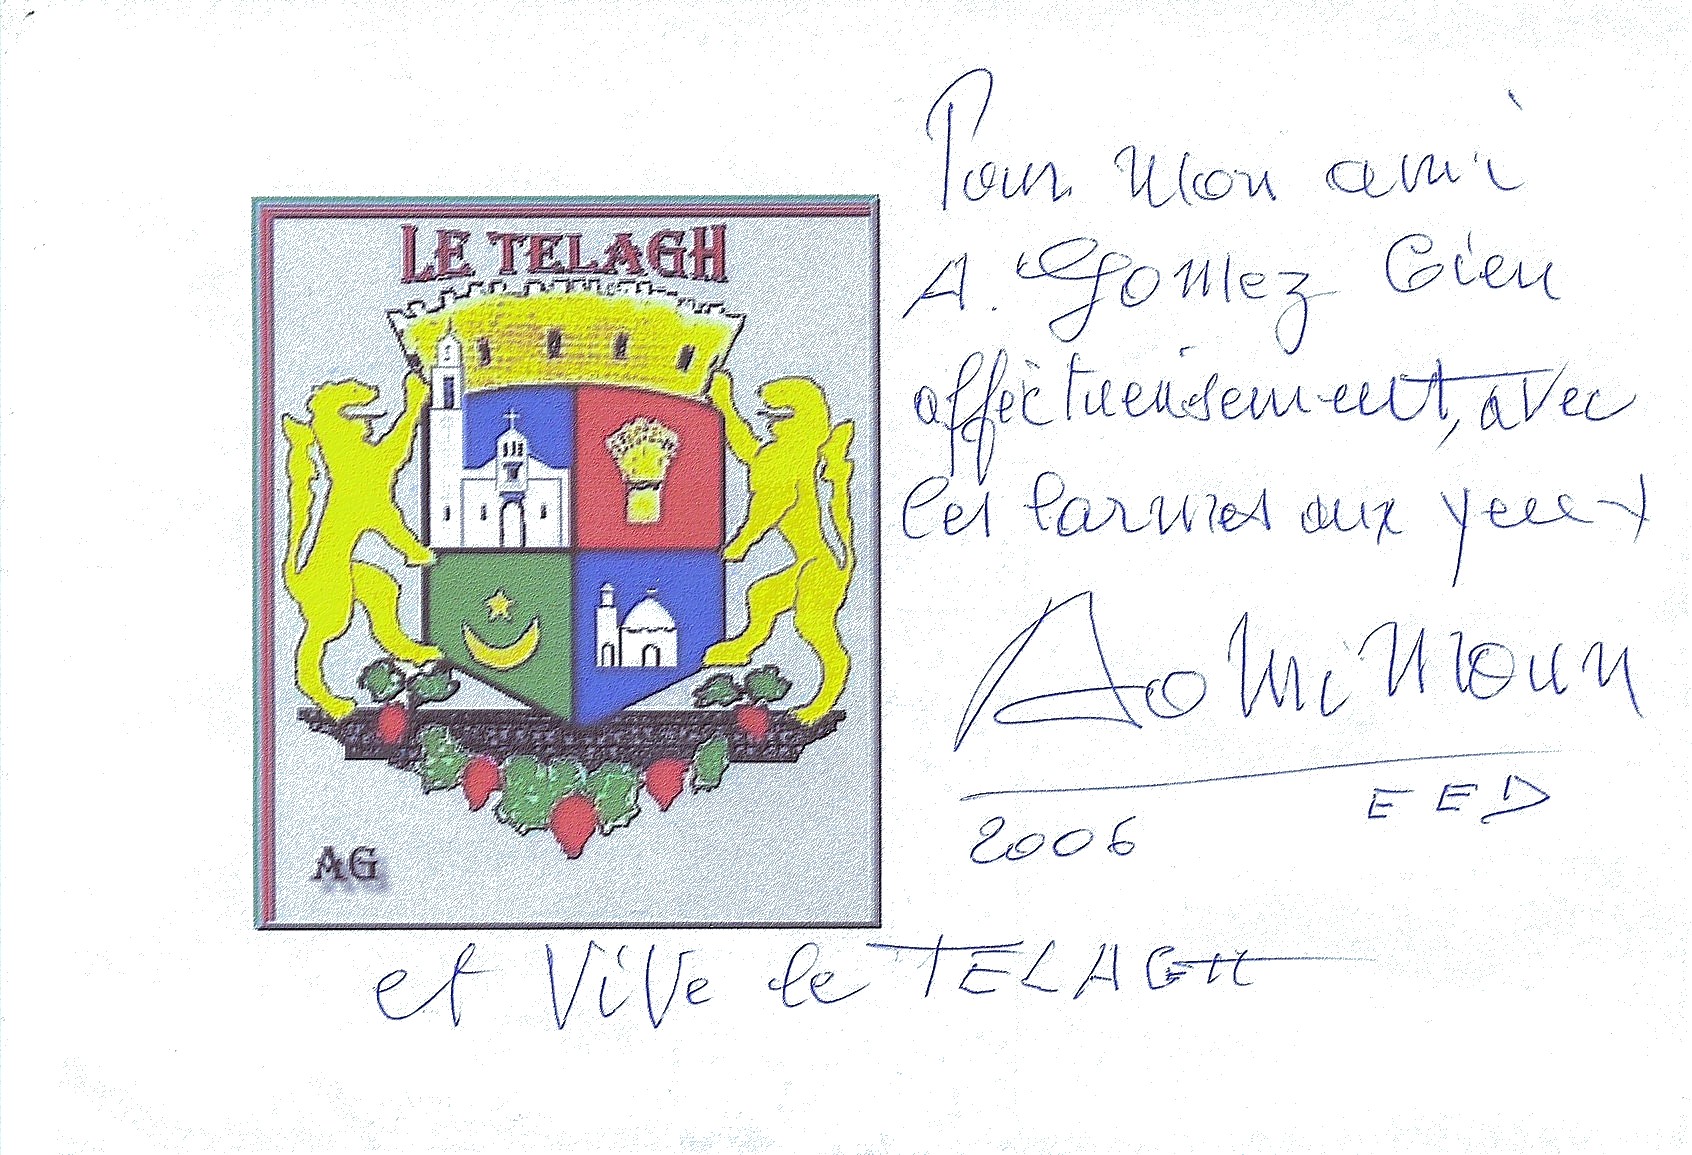 LE TELAGH
AG
Pour mon ami
A. Gomez bien
affectueusement, avec
les larmes aux yeux
2006
EED
et ViVe le TELAGH